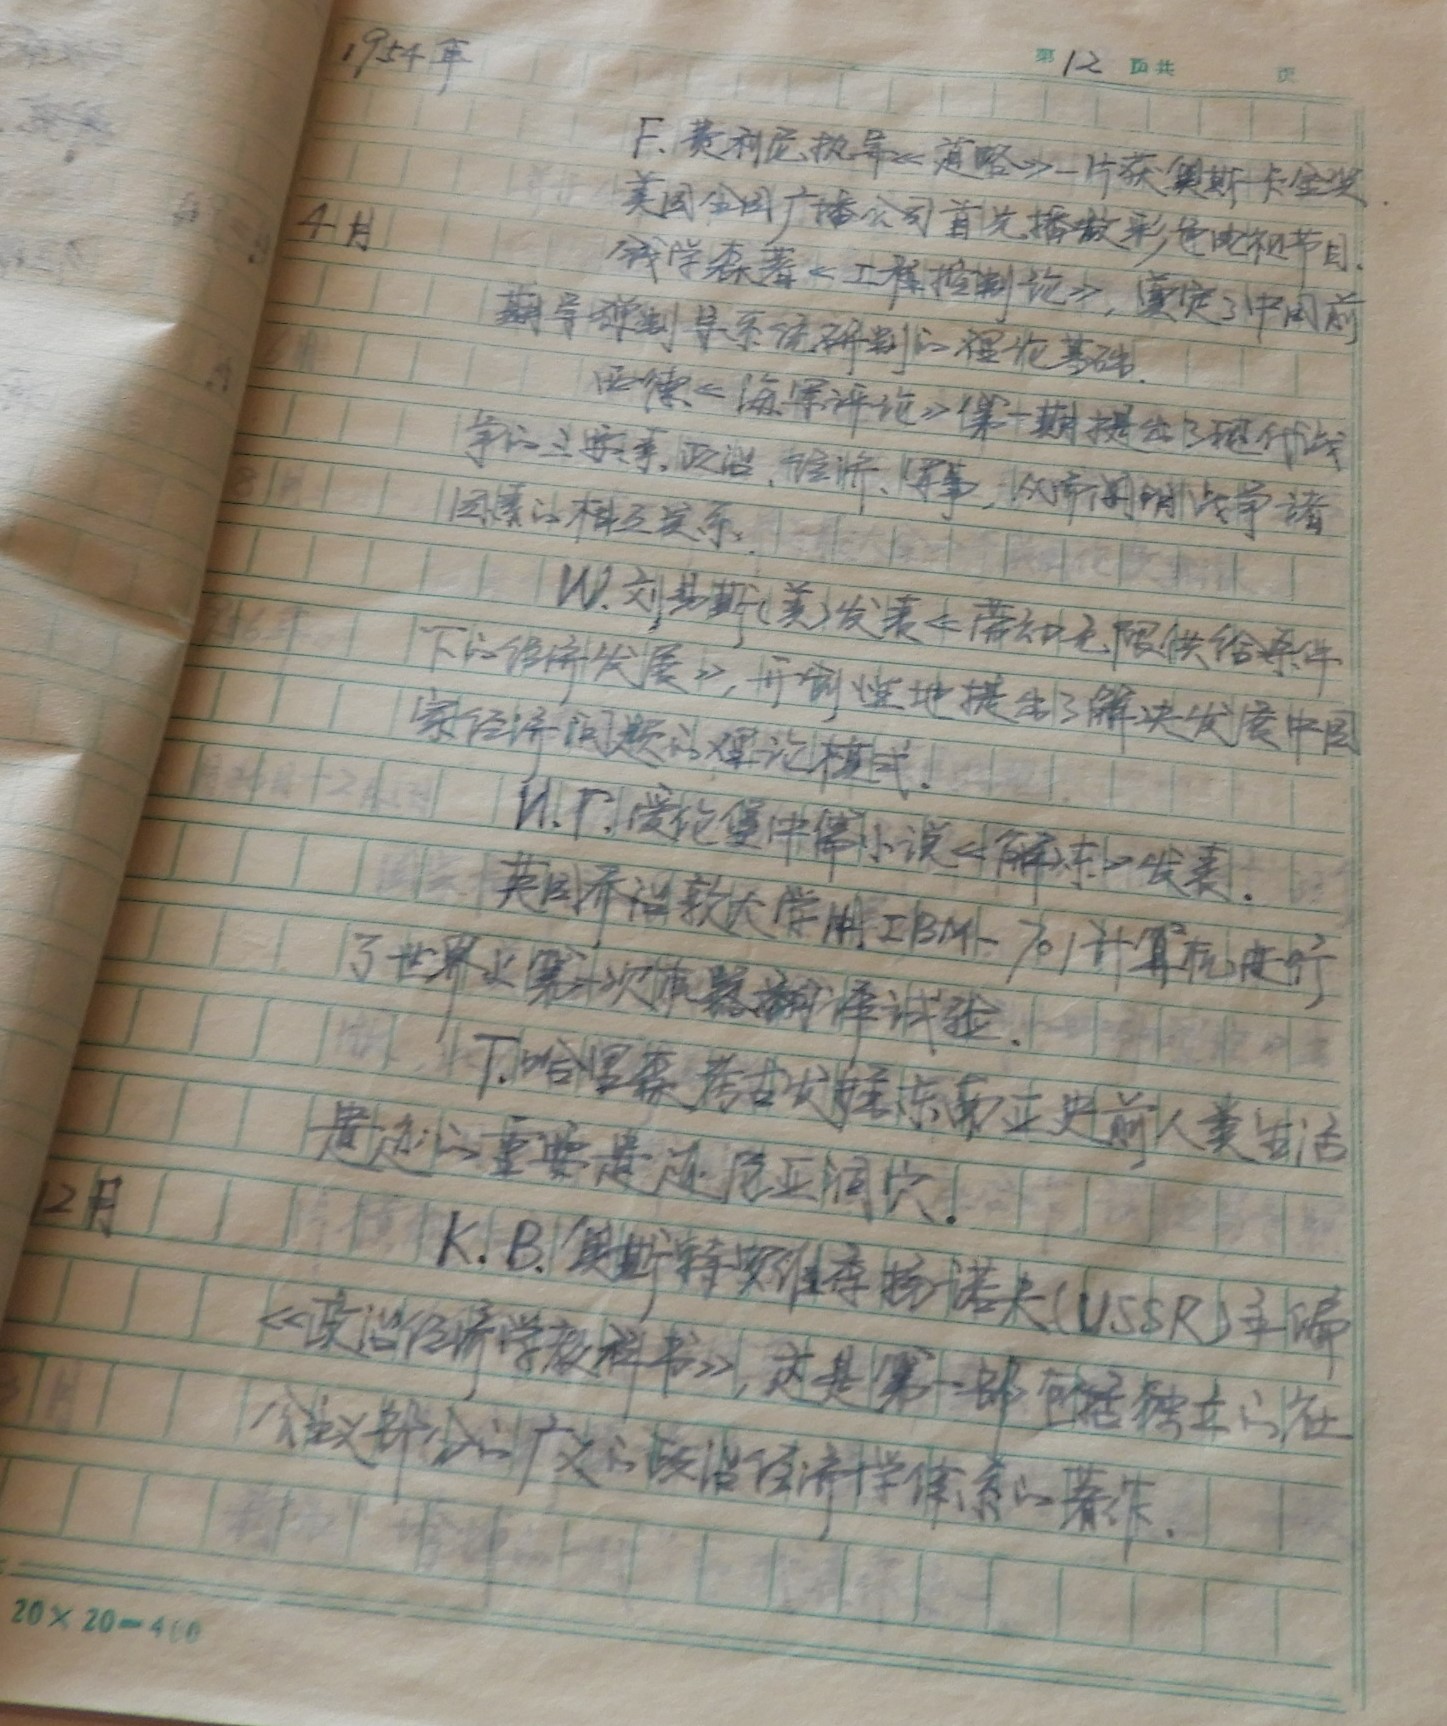 1954年
第12页共 页
F.费利尼执导《道路》一片获奥斯卡金奖.
美国全国广播公司首先播放彩色电视节目.
4月
钱学森著《工程控制论》,奠定了中国前
期导弹制导系统研制的理论基础.
西德《海军评论》第十期提出了现代战
争的三要素,政治、经济、军事,从而阐明战争诸
因素的相互关系.
W.刘易斯(美)发表《劳动无限供给条件
下的经济发展》,开创性地提出了解决发展中国
家经济问题的理论模式.
И.Г.爱伦堡中篇小说《解冻》发表.
英国乔治敦大学用IBM-701计算机进行
了世界上第一次机器翻译试验.
T.哈里森考古发掘东南亚史前人类生活
遗迹的重要遗迹尼亚洞穴.
12月
K.B.奥斯特罗维季扬诺夫(USSR)主编
《政治经济学教科书》,这是第一部包括独立的社
会主义部分的广义的政治经济学体系的著作.
20×20=400